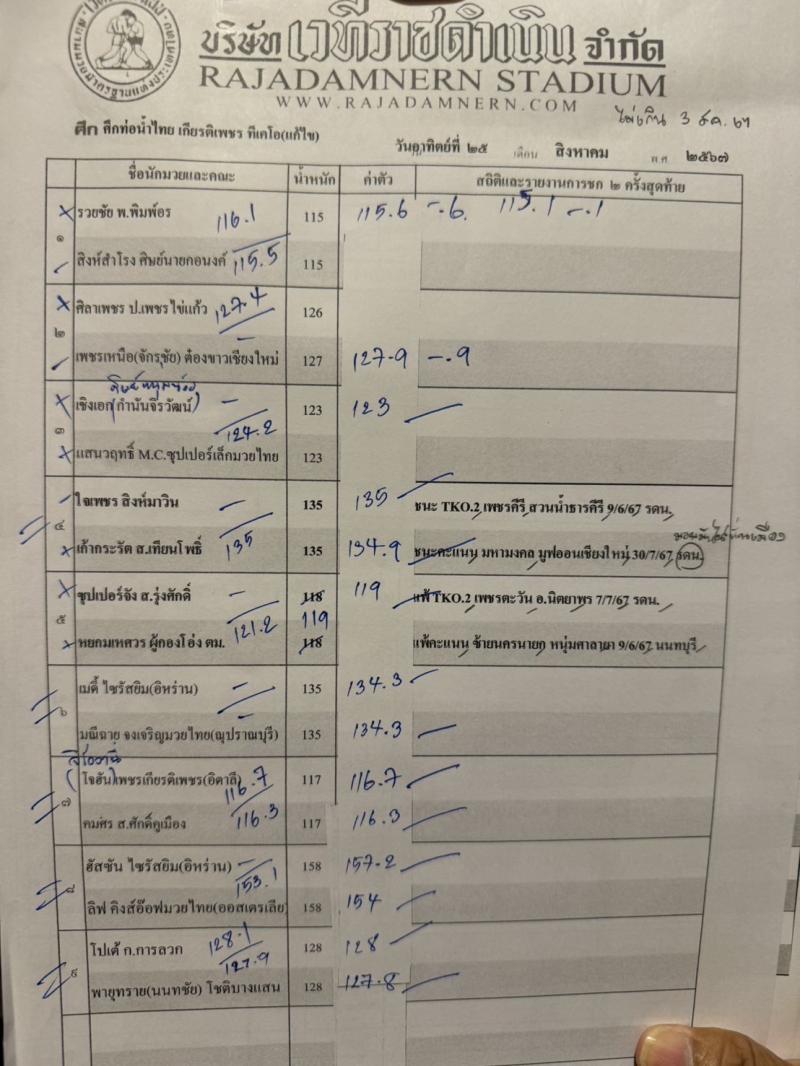 บริษัท เวทีราชดำเนิน จำกัด
RAJADAMNERN STADIUM
WWW.RAJADAMNERN.COM
ไม่เกิน 3 ธค. ๖๗
ศึก ศึกท่อน้ำไทย เกียรติเพชร ทีเคโอ(แก้ไข)
วันอาทิตย์ที่ ๒๕ เดือน สิงหาคม พ.ศ ๒๕๖๗
ชื่อนักมวยและคณะ น้ำหนัก ค่าตัว สถิติและรายงานการชก ๒ ครั้งสุดท้าย
รวยชัย พ.พิมพ์อร 116.1 115 115.6 -.6 115.1 -.1
๑
สิงห์สำโรง ศิษย์นายกอนงค์ 115.5 115
ศิลาเพชร ป.เพชรไข่แก้ว 127.4 126
๒
เพชรเหนือ(จักรุชัย) ต้องขาวเชียงใหม่ 127 127.9 -.9
เชิงเอก(กำนันจิรวัฒน์) 123 123
๓ 124.2
แสนวฤทธิ์ M.C.ซุปเปอร์เล็กมวยไทย 123
ใจเพชร สิงห์มาวิน 135 135 ชนะ TKO.2 เพชรคีรี สวนน้ำธารคีรี 9/6/67 รดน.
๔
เก้ากระรัต ส.เทียนโพธิ์ 135 135 134.9 ชนะคะแนน มหามงคล มูฟออนเชียงใหม่ 30/7/67 รดน.
ซุปเปอร์จัง ส.รุ่งศักดิ์ 118 119 แพ้ TKO.2 เพชรตะวัน อ.นิตยาพร 7/7/67 รดน.
๕ 121.2 119
หยกมเหศวร ผู้กองโอ่ง ตม. 118 แพ้คะแนน ซ้ายนครนายก หนุ่มศาลายา 9/6/67 นนทบุรี
เมดี้ ไซรัสยิม(อิหร่าน) 135 134.3
๖
มณีฉาย จงเจริญมวยไทย(ณุปราณบุรี) 135 134.3
(โจฮัน)เพชรเกียรติเพชร(อิตาลี) 116.7 117 116.7
๗
คมศร ส.ศักดิ์คูเมือง 116.3 117 116.3
ฮัสซัน ไซรัสยิม(อิหร่าน) 158 157.2
๘ 153.1
ลิฟ คิงส์อ๊อฟมวยไทย(ออสเตรเลีย) 158 154
โปเต้ ก.การลวก 128.1 128 128
๙ 127.9
พายุทราย(นนทชัย) โชติบางแสน 128 127.8